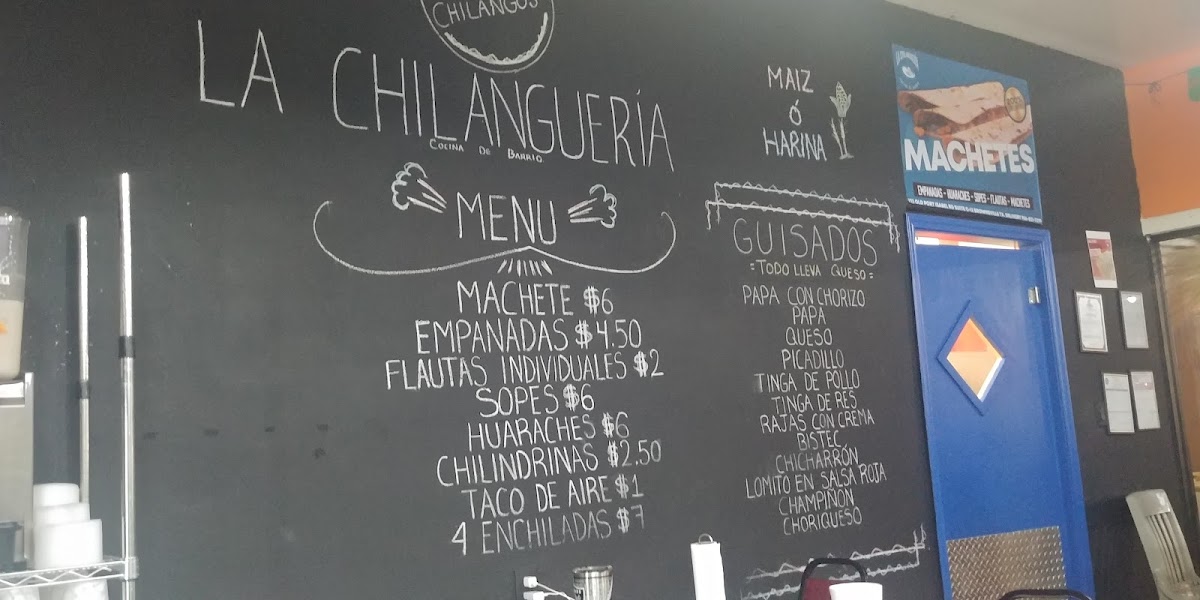 CHILANGOS
LA CHILANGUERÍA
COCINA DE BARRIO
MENU
MACHETE $6
EMPANADAS $4.50
FLAUTAS INDIVIDUALES $2
SOPES $6
HUARACHES $6
CHILINDRINAS $2.50
TACO DE AIRE $1
4 ENCHILADAS $7
MAIZ
Ó
HARINA
GUISADOS
=TODO LLEVA QUESO=
PAPA CON CHORIZO
PAPA
QUESO
PICADILLO
TINGA DE POLLO
TINGA DE RES
RAJAS CON CREMA
BISTEC
CHICHARRÓN
LOMITO EN SALSA ROJA
CHAMPIÑON
CHORIQUESO
MACHETES
EMPANADAS - HUARACHES - SOPES - FLAUTAS - MACHETES